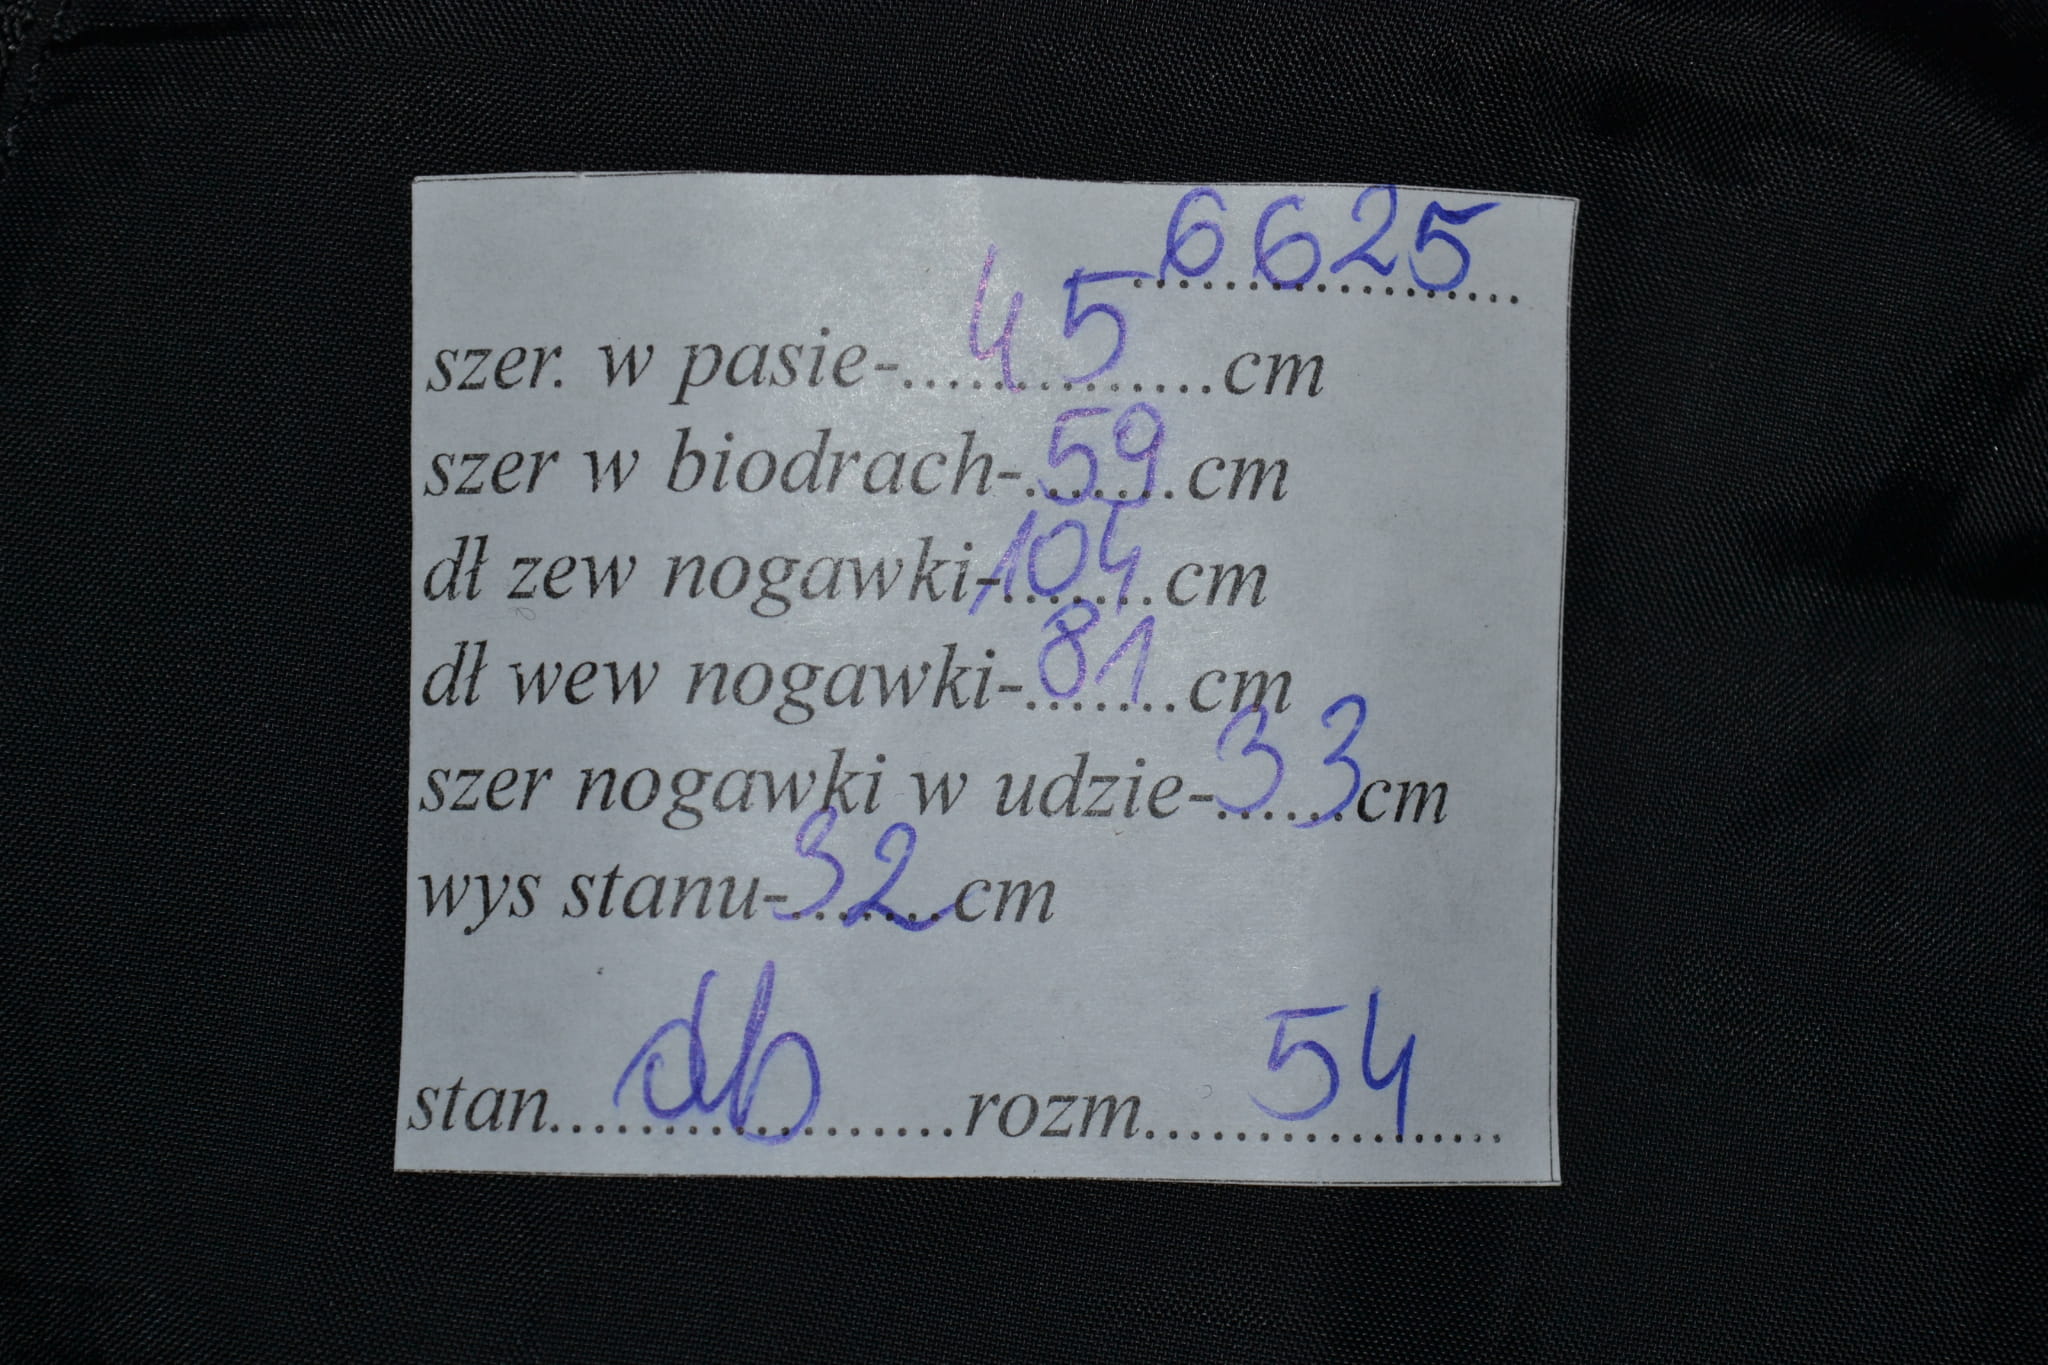 6625
szer. w pasie-45cm
szer w biodrach-59cm
dł zew nogawki-104cm
dł wew nogawki-81cm
szer nogawki w udzie-33cm
wys stanu-32cm
stan....db....rozm....54....